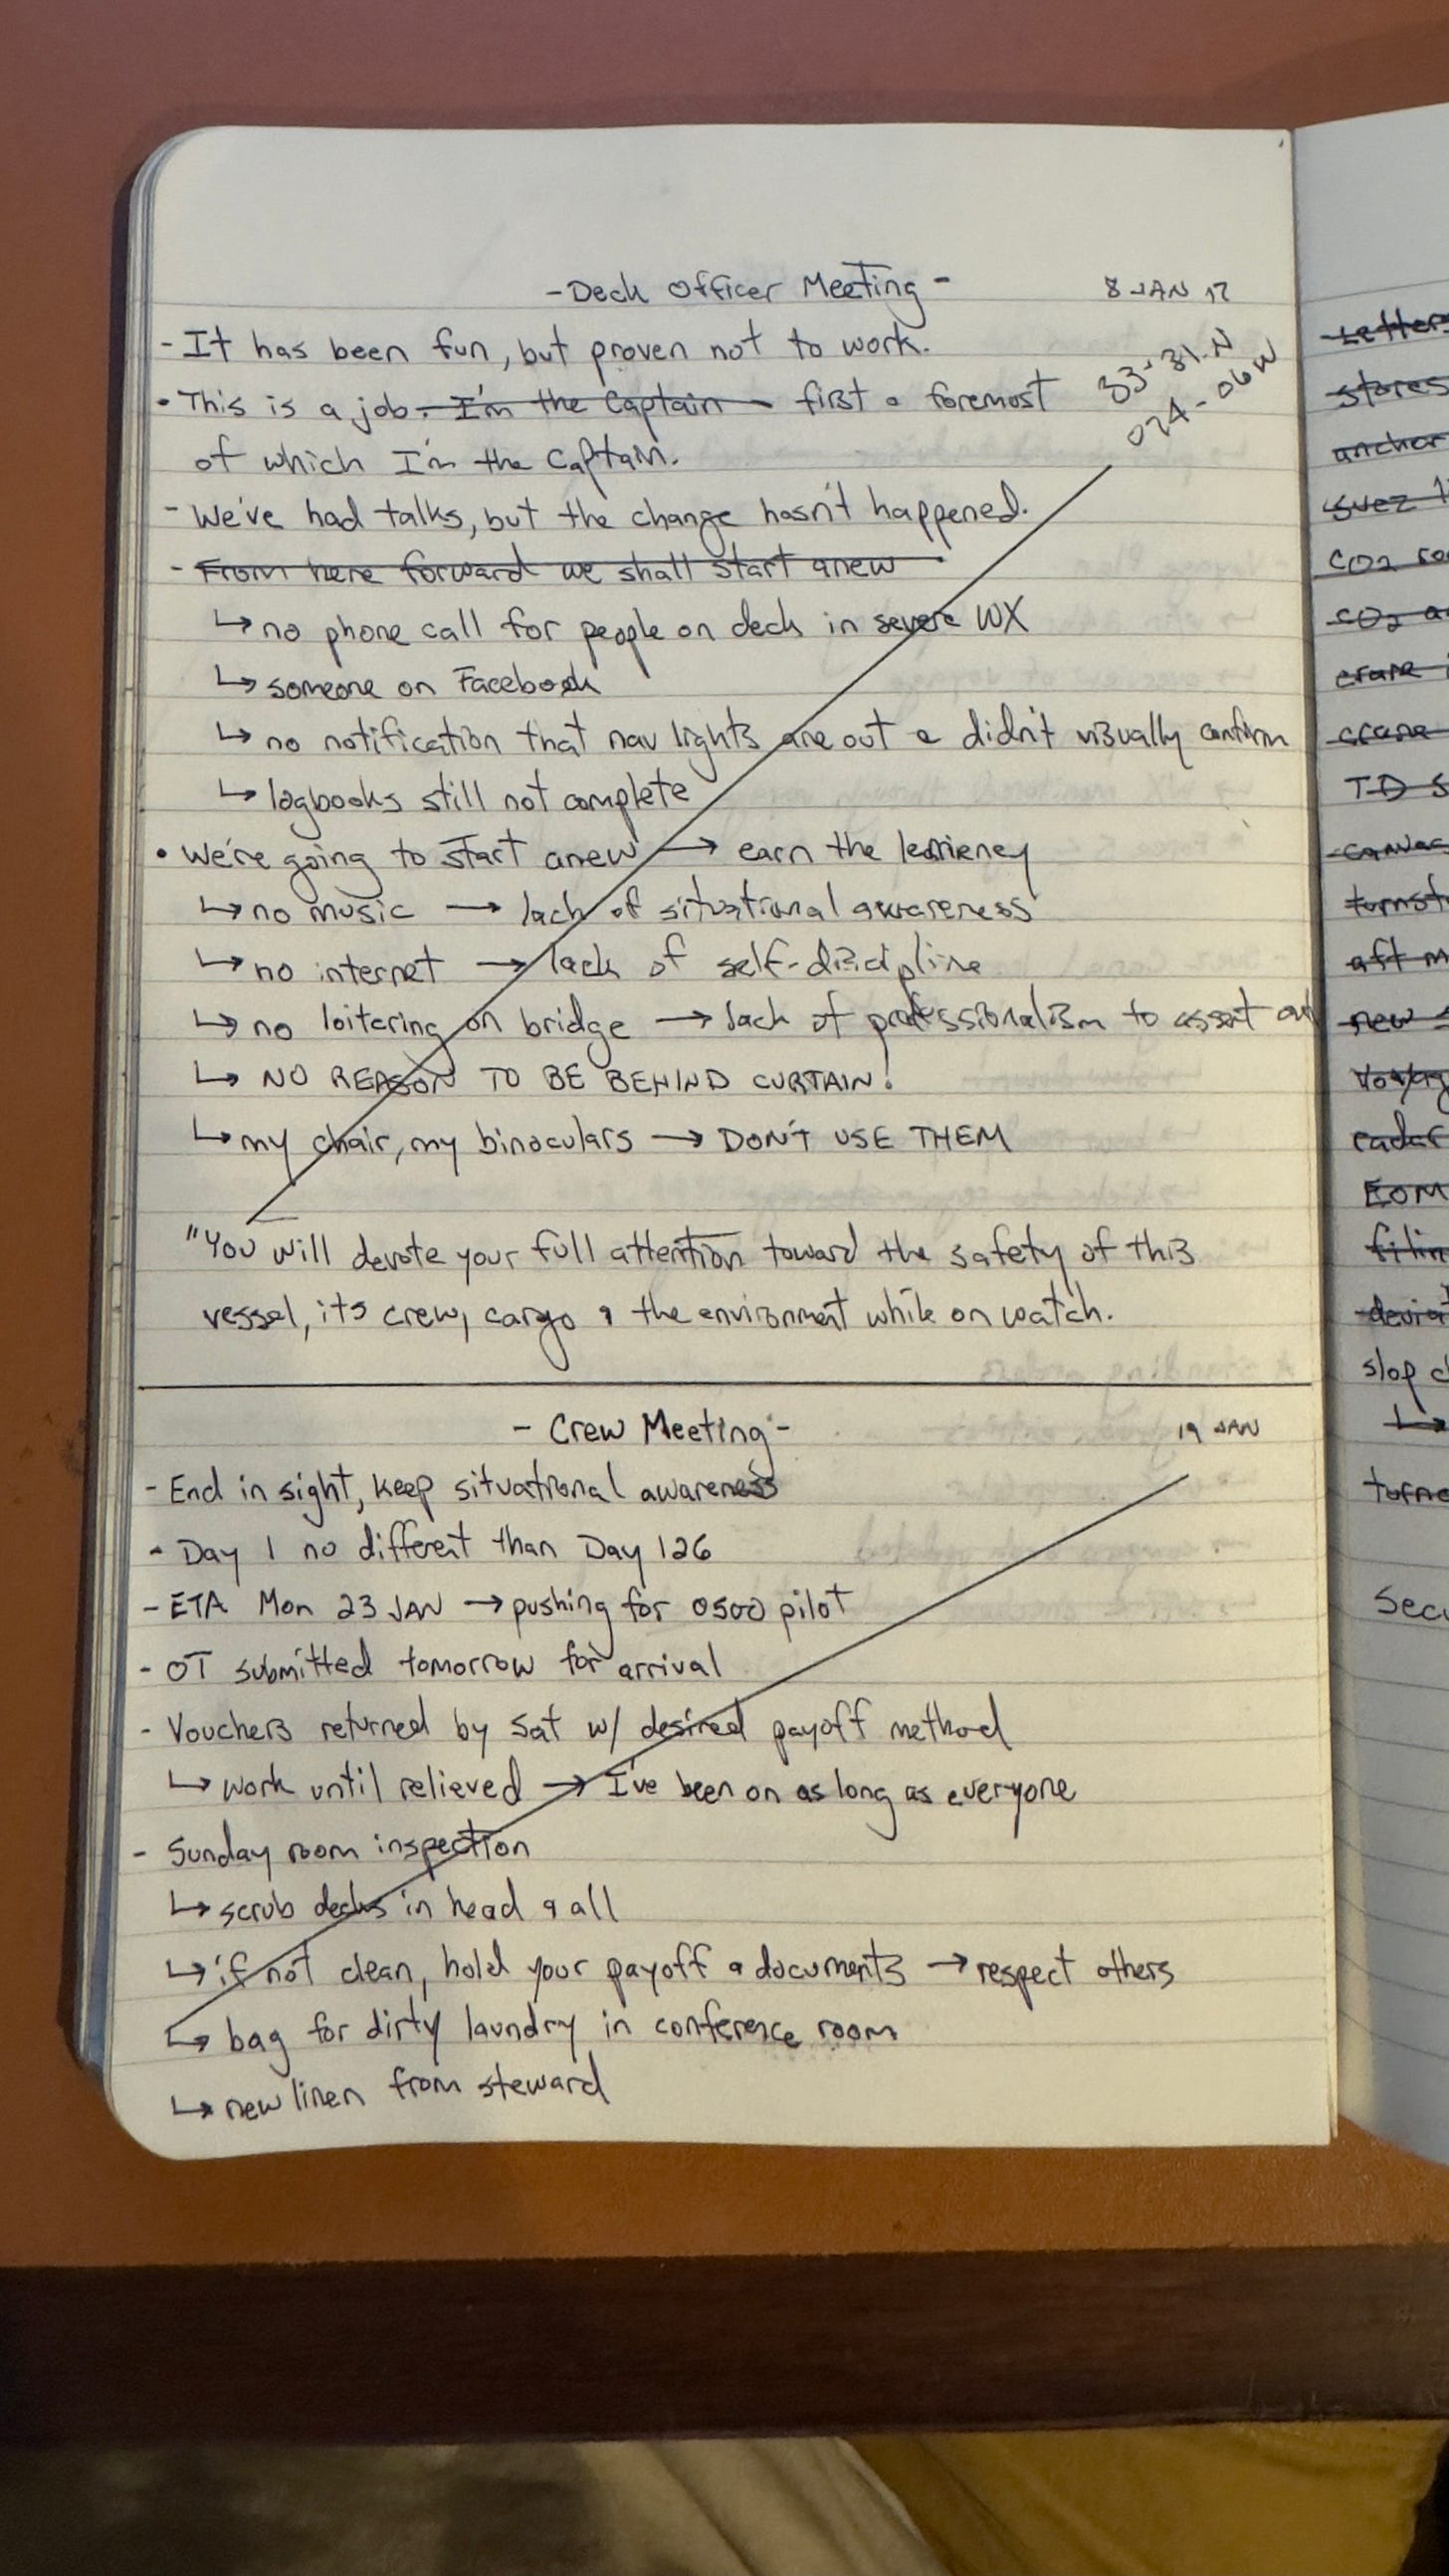 -Deck Officer Meeting- 8 JAN 17
- It has been fun, but proven not to work.
33-31.N
074-06W
• This is a job. I'm the Captain - first & foremost
of which I'm the Captain.
- We've had talks, but the change hasn't happened.
- From here forward we shall start anew
↳ no phone call for people on deck in severe WX
↳ someone on Facebook
↳ no notification that nav lights are out & didn't visually confirm
↳ logbooks still not complete
• We're going to start anew → earn the
↳ no music → lack of situational awareness
↳ no internet → lack of self-discipline
↳ no loitering on bridge → lack of professionalism to assert
↳ NO REASON TO BE BEHIND CURTAIN!
↳ my chair, my binoculars → DON'T USE THEM
"You will devote your full attention toward the safety of this
vessel, its crew, cargo & the environment while on watch.
- Crew Meeting - 19 JAN
- End in sight, keep situational awareness
- Day 1 no different than Day 126
- ETA Mon 23 JAN → pushing for 0500 pilot
- OT submitted tomorrow for arrival
- Vouchers returned by Sat w/ desired payoff method
↳ work until relieved → I've been on as long as everyone
- Sunday room inspection
↳ scrub decks in head & all
↳ if not clean, hold your payoff & documents → respect others
↳ bag for dirty laundry in conference room
↳ new linen from steward
stores
suez
TD
new
radar
EOM
slop